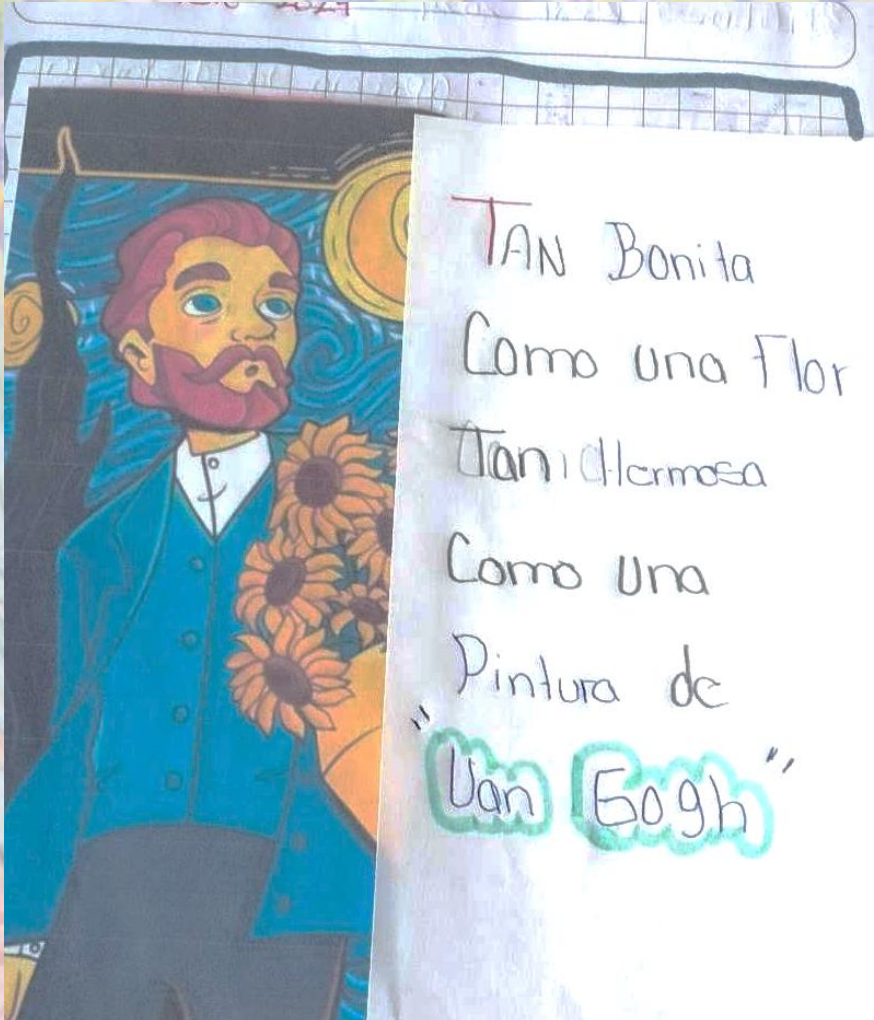 TAN Bonita
Como una Flor
Tan Hermosa
Como Una
Pintura de
"Van Gogh"